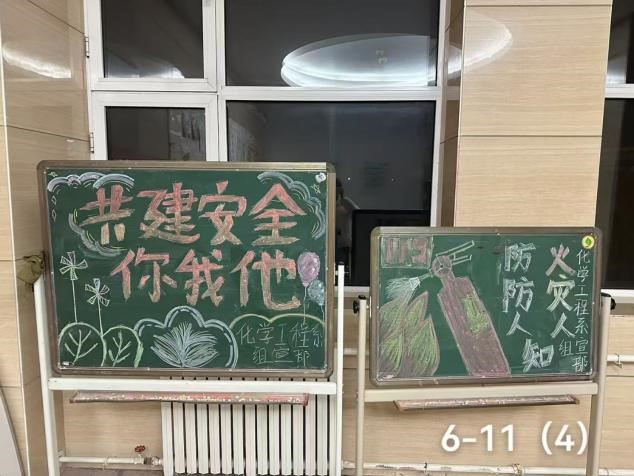 共建安全
你我他
化学工程系
组宣部
119
火灾人
防防人知
化学工程系
组宣部
6-11（4）